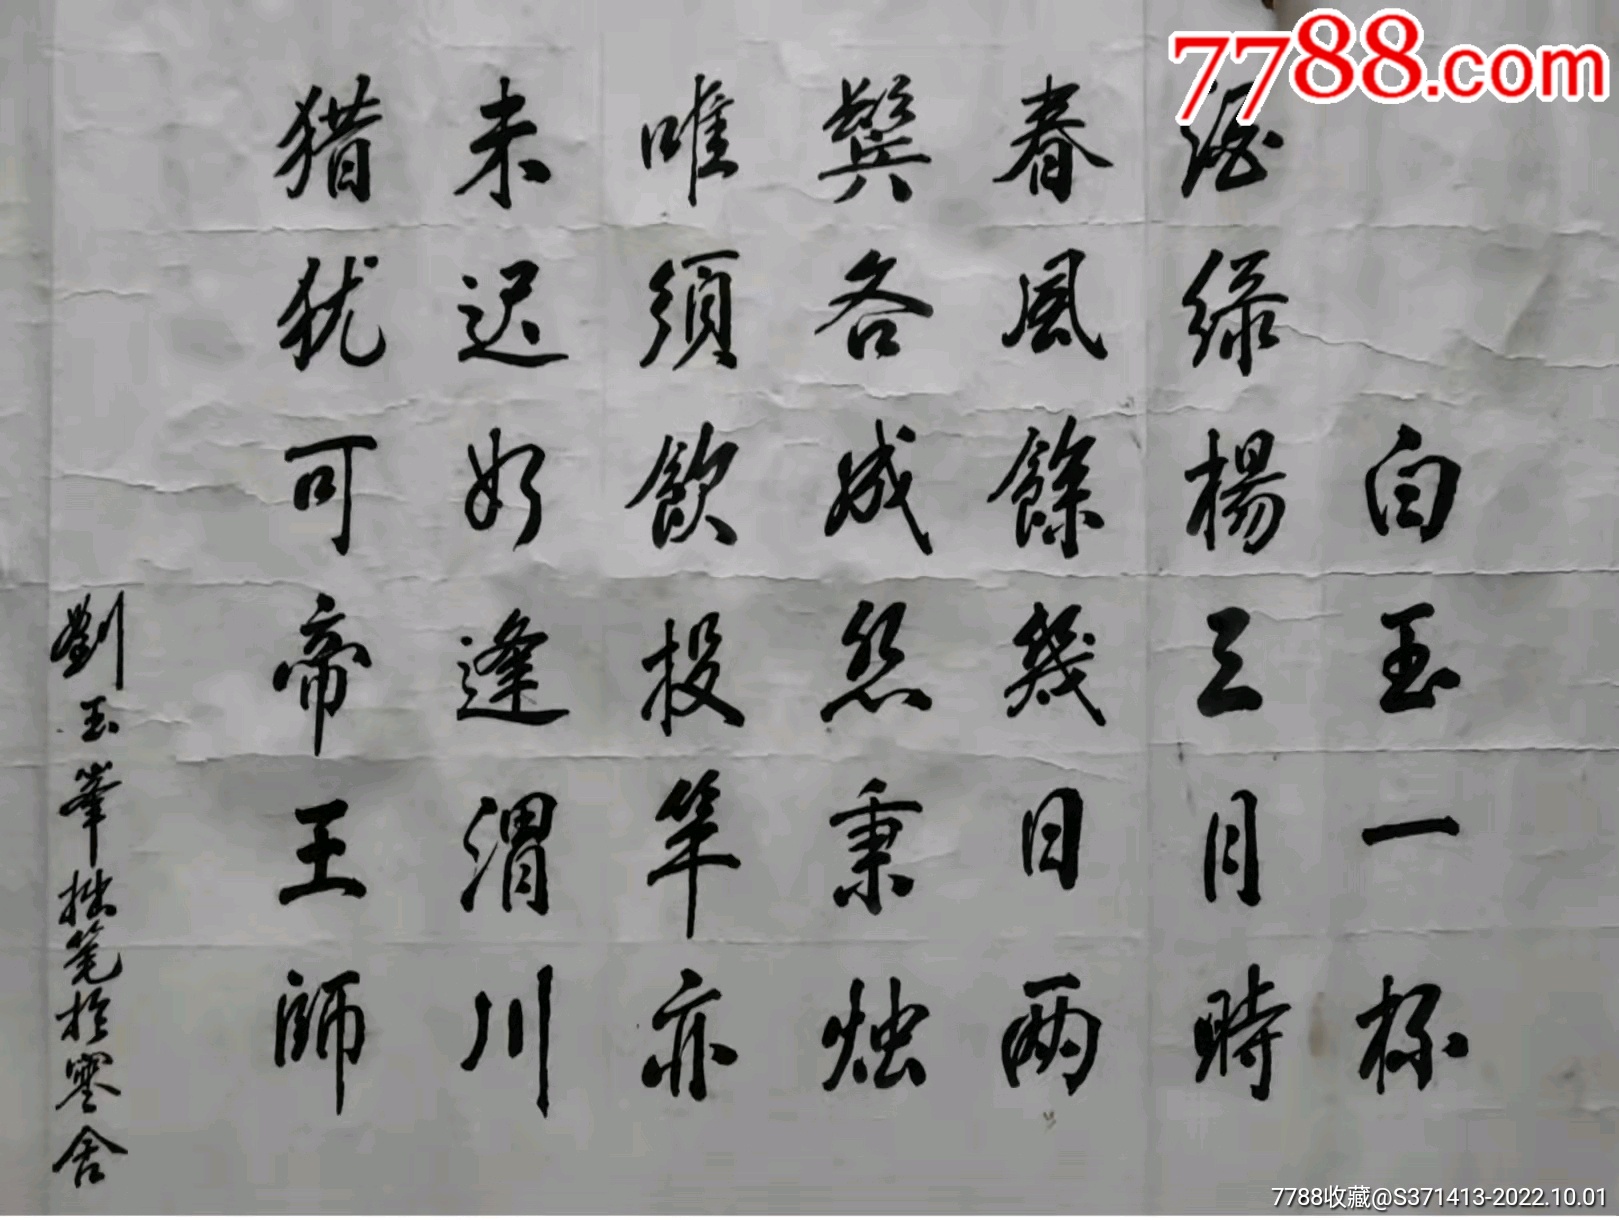 7788.com
白玉一杯
酒绿楊三月時
春風餘幾日兩
鬓各成丝秉烛
唯須飲投竿亦
未迟如逢渭川
猎犹可帝王師
劉玉峯拙笔於寒舍
7788收藏@S371413-2022.10.01